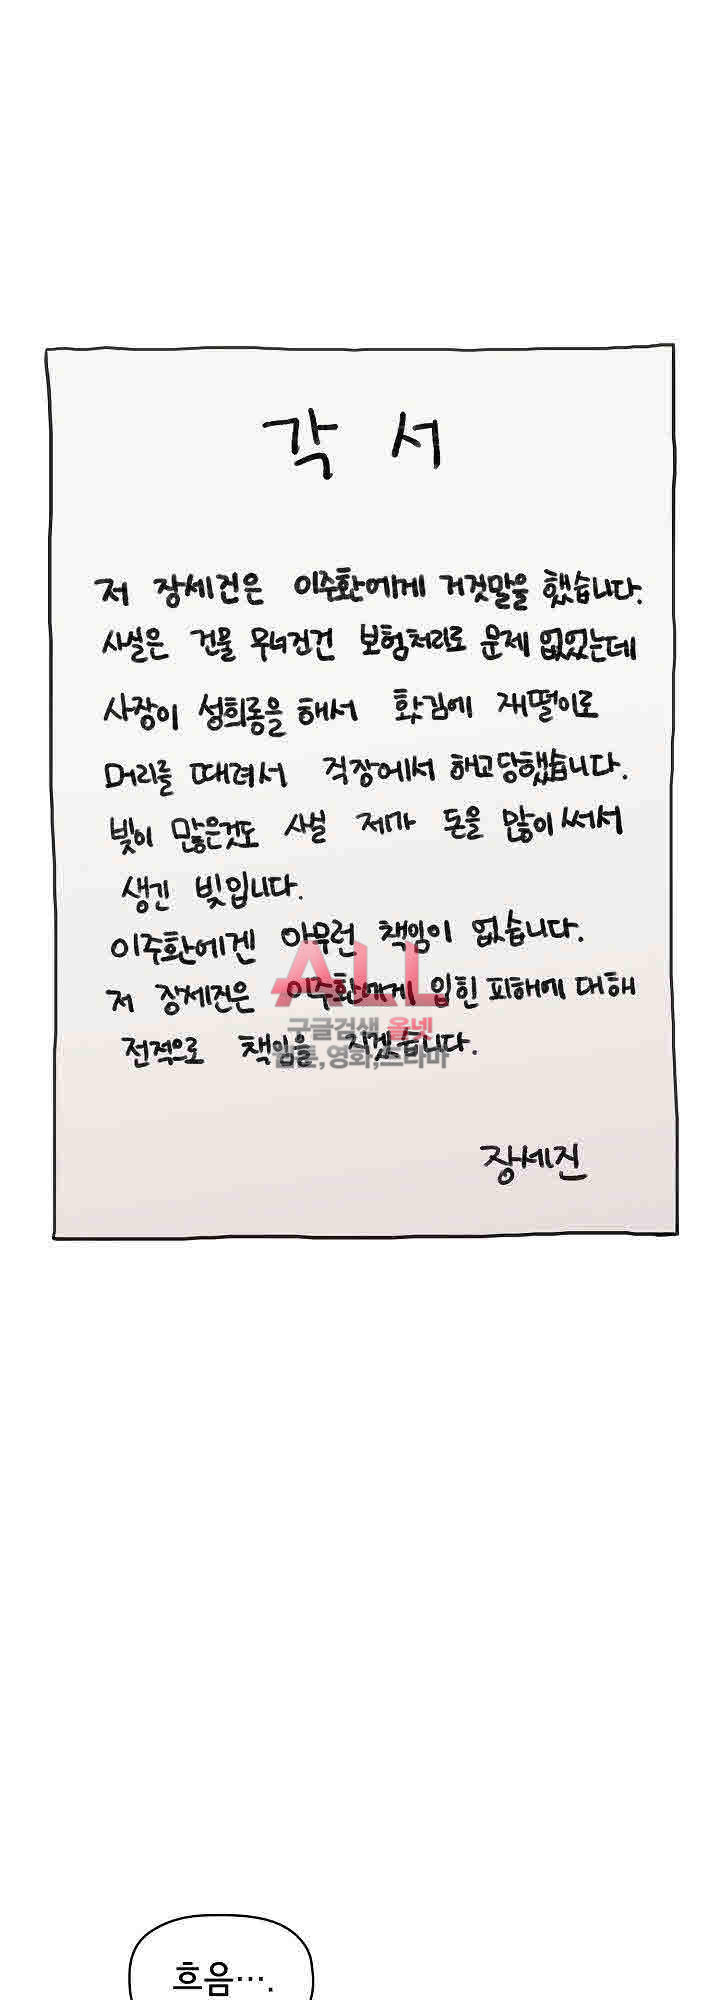 각 서
저 장세진은 이주환에게 거짓말을 했습니다.
사실은 건물 무너진건 보험처리로 문제 없었는데
사장이 성희롱을 해서 홧김에 재떨이로
머리를 때려서 직장에서 해고당했습니다.
빚이 많은것도 사실 제가 돈을 많이 써서
생긴 빚입니다.
이주환에겐 아무런 책임이 없습니다.
저 장세진은 이주환에게 입힌 피해에 대해
전적으로 책임을 지겠습니다.
장세진
ALL
구글검색 올넷
웹툰,영화,드라마
흐음….